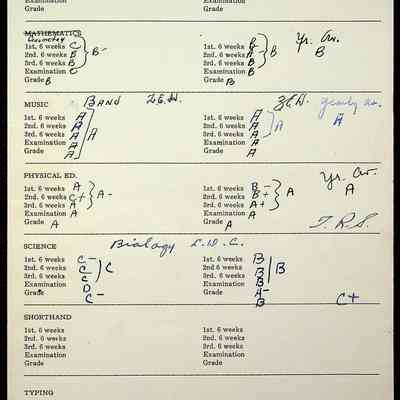 Examination Examination
Grade Grade
MATHEMATICS
Geometry Yr. Av.
1st. 6 weeks C 1st. 6 weeks B
2nd. 6 weeks B B- 2nd. 6 weeks A- B B
3rd. 6 weeks B 3rd. 6 weeks B
Examination C Examination B
Grade B Grade B
MUSIC BAND yearly av.
1st. 6 weeks A 1st. 6 weeks A
2nd. 6 weeks A 2nd. 6 weeks A A A
3rd. 6 weeks A A 3rd. 6 weeks A
Examination A Examination A
Grade A Grade A
PHYSICAL ED. Yr. Av.
1st. 6 weeks A 1st. 6 weeks B- A
2nd. 6 weeks C+ A- 2nd. 6 weeks B+ A
3rd. 6 weeks A 3rd. 6 weeks A+
Examination A Examination A
Grade A Grade A T.R.S.
SCIENCE Biology L.D.C.
1st. 6 weeks C- 1st. 6 weeks B
2nd. 6 weeks C C 2nd 6 weeks B B
3rd. 6 weeks C 3rd. 6 weeks B
Examination D Examination A-
Grade C- Grade B C+
SHORTHAND
1st. 6 weeks 1st. 6 weeks
2nd. 6 weeks 2nd. 6 weeks
3rd. 6 weeks 3rd. 6 weeks
Examination Examination
Grade Grade
TYPING